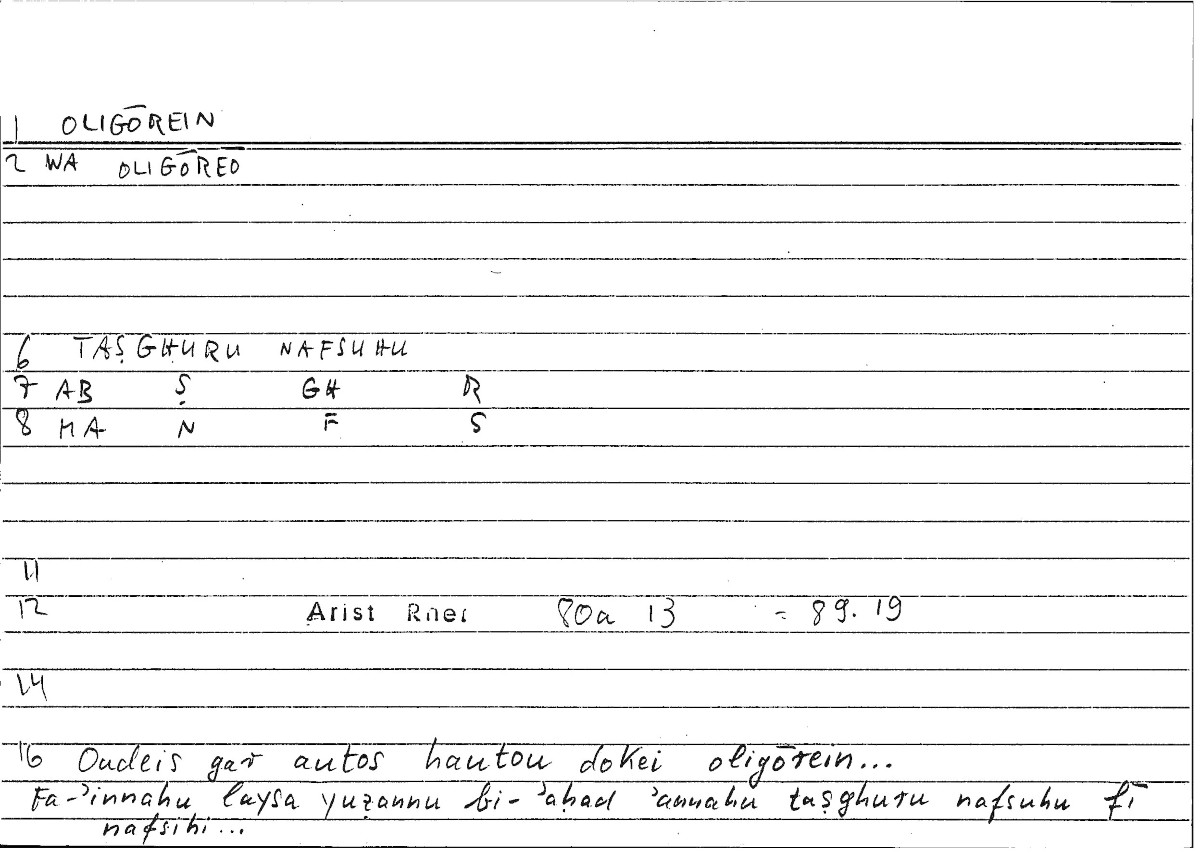 1 OLIGŌREIN
2 WA OLIGŌREŌ
6 TAṢGHURU NAFSUHU
7 AB Ṣ GH R
8 MA N F S
11
12 Arist Rhet 80a 13 = 89.19
14
16 Oudeis gar autos hautou dokei oligōrein...
Fa-ʾinnahu laysa yuẓannu bi-ʾaḥad ʾannahu taṣghuru nafsuhu fī
nafsihi...